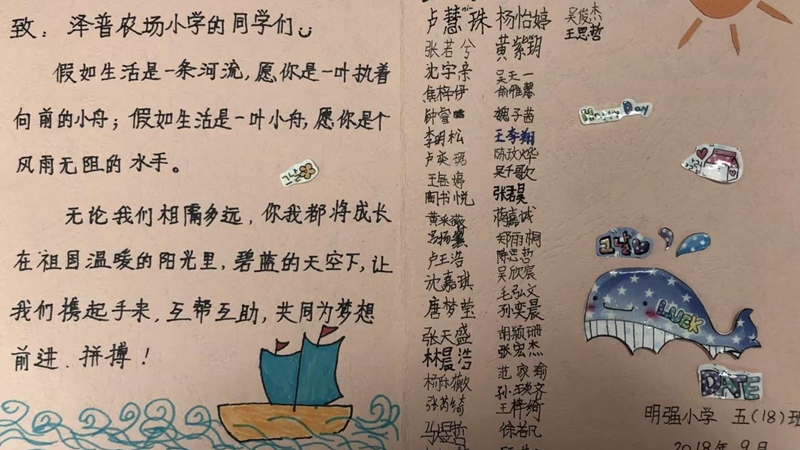 致：泽普农场小学的同学们
假如生活是一条河流，愿你是一叶执着
向前的小舟；假如生活是一叶小舟，愿你是个
风雨无阻的水手。
无论我们相隔多远，你我都将成长
在祖国温暖的阳光里，碧蓝的天空下，让
我们携起手来，互帮互助，共同为梦想
前进、拼搏！
卢慧珠
张若兮
沈宇亲
焦梓伊
李明松
陶书悦
卢王浩
沈嘉琪
唐梦莹
张天盛
林晨浩
张芮绮
杨怡婷
黄紫玥
吴天一
魏子茜
王李翔
陈玟烨
吴千歌
张君昊
蒋嘉诚
郑雨桐
陈思哲
吴欣宸
毛弘文
孙奕晨
胡颖珊
张宏杰
范家瑜
王梓绮
徐若凡
吴俊杰
王思哲
Happy Day
LUCK
DATE
明强小学 五(18)班
2018年9月